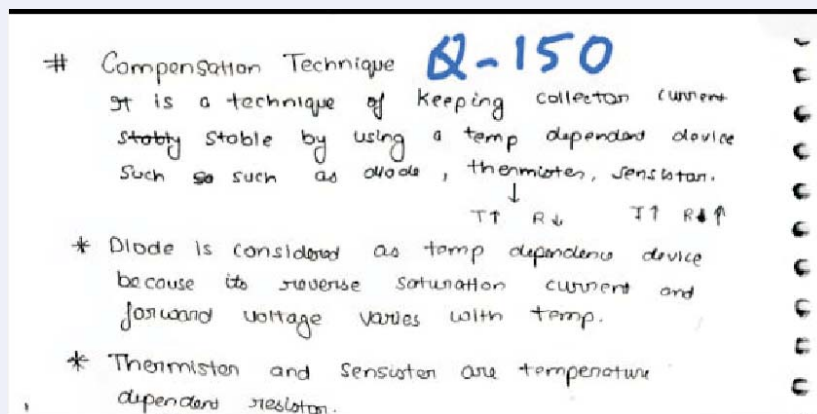 # Compensation Technique Q-150
It is a technique of keeping collector current
stably stable by using a temp dependent device
Such so such as diode, thermister, sensistor.
↓
T↑ R↓ T↑ R↓↑
* Diode is considered as temp dependence device
because its reverse saturation current and
forward voltage varies with temp.
* Thermister and Sensister are temperature
dependent resistor.